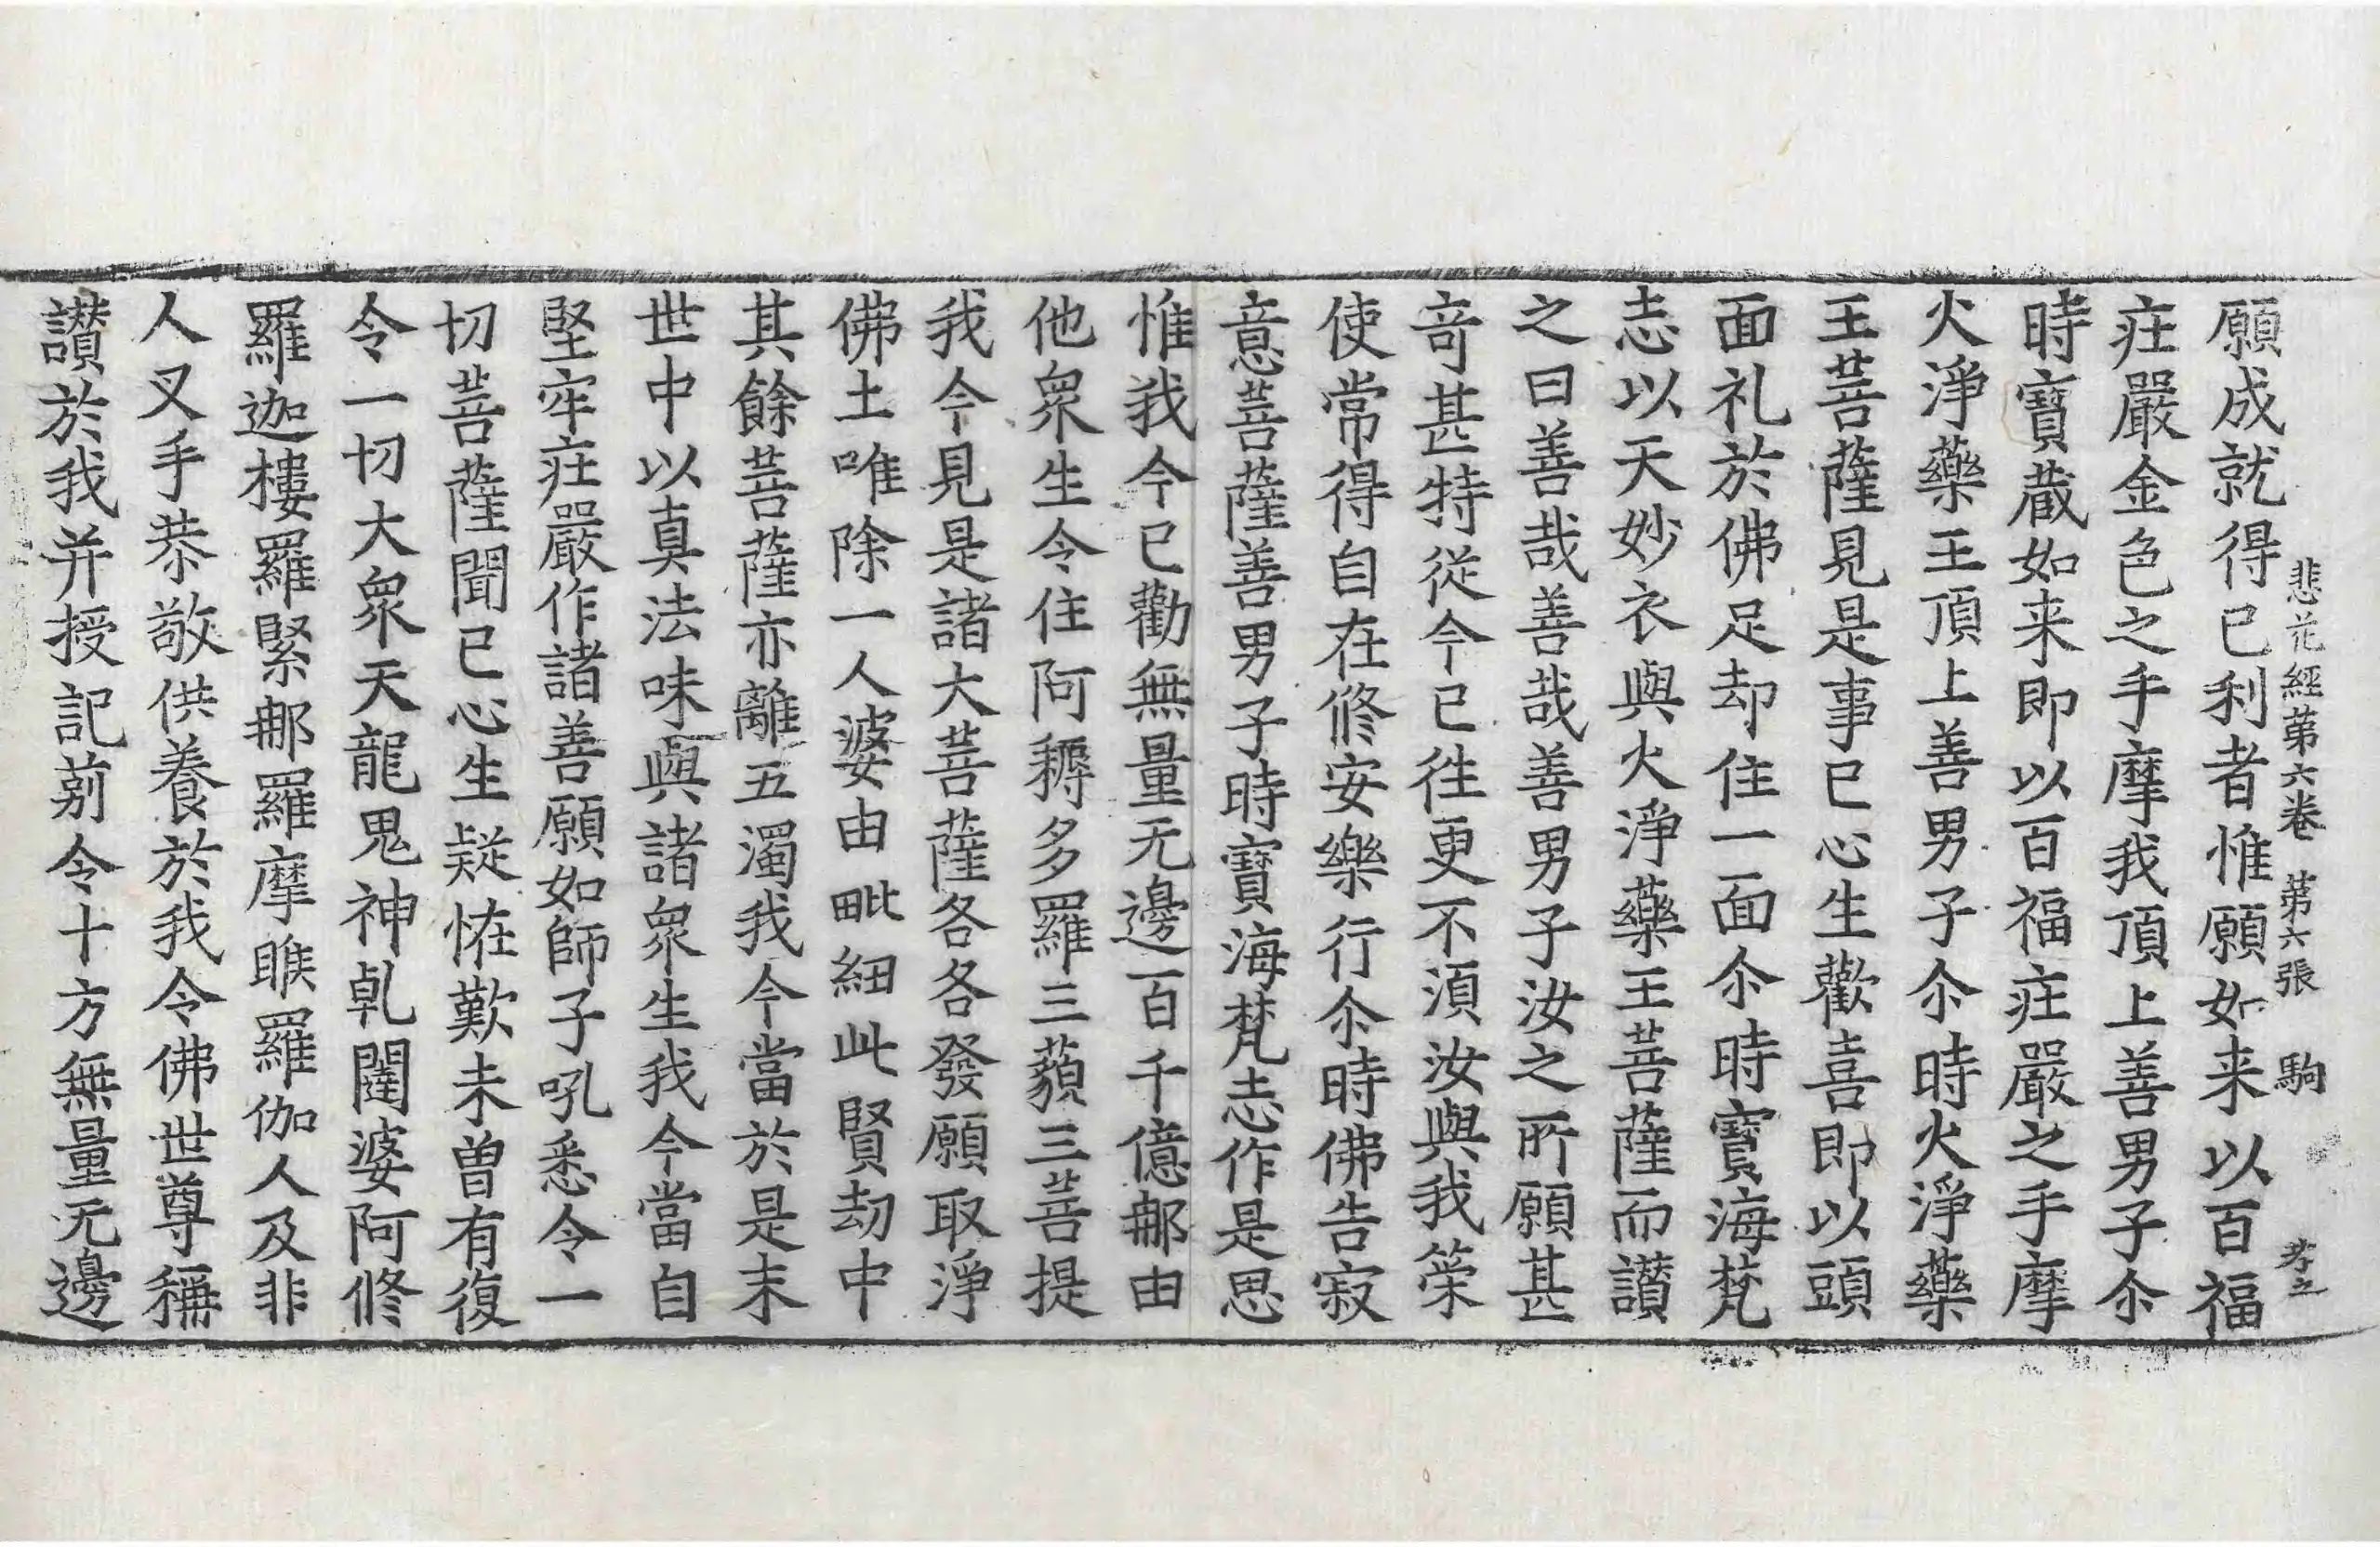 悲花經第六卷 第六張 駒 孝之
願成就得已利者惟願如来以百福
莊嚴金色之手摩我頂上善男子尒
時寶蔵如来即以百福莊嚴之手摩
火淨藥王頂上善男子尒時火淨藥
王菩薩見是事已心生歡喜即以頭
面礼於佛足却住一面尒時寶海梵
志以天妙衣與火淨藥王菩薩而讃
之曰善哉善哉善男子汝之所願甚
竒甚特從今已徃更不須汝與我䇿
使常得自在修安樂行尒時佛告寂
意菩薩善男子時寶海梵志作是思
惟我今已勸無量无邊百千億那由
他衆生令住阿耨多羅三藐三菩提
我今見是諸大菩薩各各發願取淨
佛土唯除一人婆由毗紐此賢劫中
其餘菩薩亦離五濁我今當於是末
世中以真法味與諸衆生我今當自
堅牢莊嚴作諸善願如師子吼悉令一
切菩薩聞已心生疑恠歎未曽有復
令一切大衆天龍鬼神乹闥婆阿修
羅迦樓羅緊那羅摩睺羅伽人及非
人叉手恭敬供養於我令佛世尊稱
讃於我并授記莂令十方無量无邊